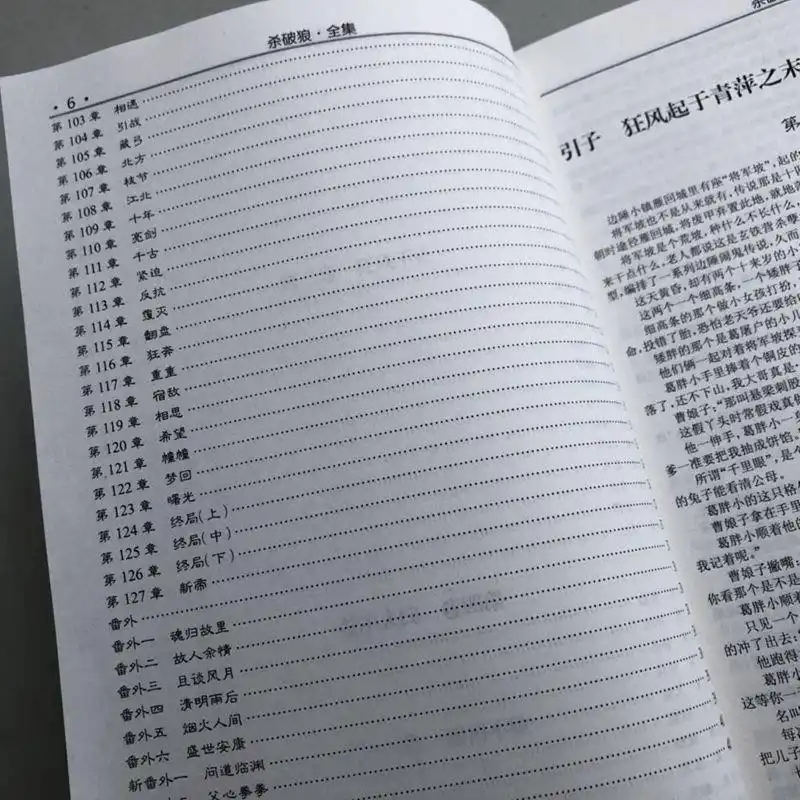 杀破狼·全集
·6·
第103章 相遇
第104章 引战
第105章 藏弓
第106章 北方
第107章 枝节
第108章 江北
第109章 十年
第110章 亮剑
第111章 千古
第112章 紧迫
第113章 反抗
第114章 覆灭
第115章 翻盘
第116章 狂奔
第117章 重重
第118章 宿敌
第119章 相思
第120章 希望
第121章 幢幢
第122章 梦回
第123章 曙光
第124章 终局(上)
第125章 终局(中)
第126章 终局(下)
第127章 新帝
番外
番外一 魂归故里
番外二 故人余情
番外三 且谈风月
番外四 清明雨后
番外五 烟火人间
番外六 盛世安康
新番外一 问道临渊
父心拳拳
杀破
引子 狂风起于青萍之末
第
边陲小镇雁回城里有座“将军坡”,起的
将军坡也不是从来就有,传说那是十四
朝时途径雁回城,将废甲弃置此地,就地
将军坡是个荒坡,种什么不长什么,
来干点什么,老人都说这是玄铁营杀孽
型,编排了一系列边陲闹鬼传说,久而
这天黄昏,却有两个十来岁的小
这两个一个细高条,一个矮胖子
细高条的那个做小女孩打扮,
命,投错了胎,恐怕老天爷还要给
矮胖的那个是葛屠户的小儿
他们俩一起对着将军坡探
葛胖小手里捧着个铜皮的
落了,还不下山,我大哥真是
曹娘子:“那叫悬梁刺股
这假丫头时常假戏真做
他一伸手,葛胖小一身
爹一准要把我抽成饸饹。
所谓“千里眼”,是个
的兔子能看清公母。
葛胖小的这只格外
曹娘子拿在手里
葛胖小顺着他的
我记着呢。”
曹娘子撇嘴:
你看那个是不是
葛胖小顺着
只见一个
的冲了出去:
他跑得
葛胖小
这等你一
名叫
每逢
把儿子